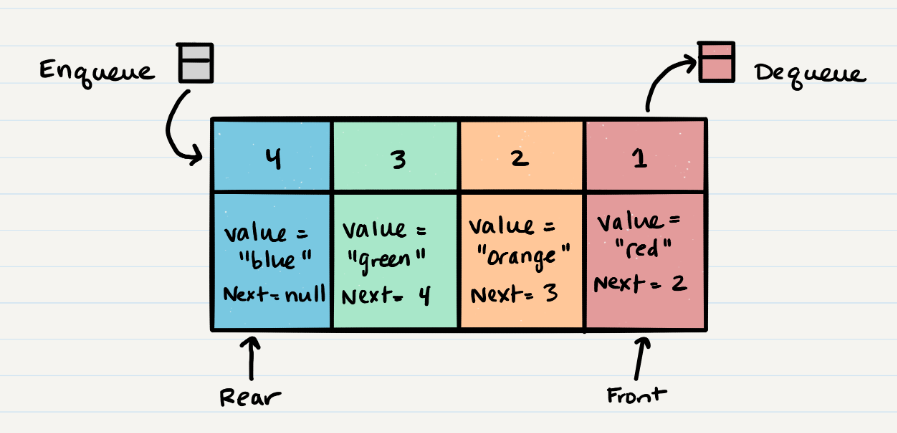 Enqueue
Dequeue
4
3
2
1
value =
"blue"
Next=null
value =
"green"
Next= 4
value =
"Orange"
Next= 3
value =
"red"
Next= 2
Rear
Front